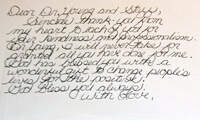 Dear Dr. Young and Staff,
Sincere thank you from
my heart to each of you for
your kindness and professionalism.
Dr. Young, I will never take for
granted all you have done for me.
God has blessed you with a
wonderful gift to change people's
lives for the positive.
God bless you always.
With Love,